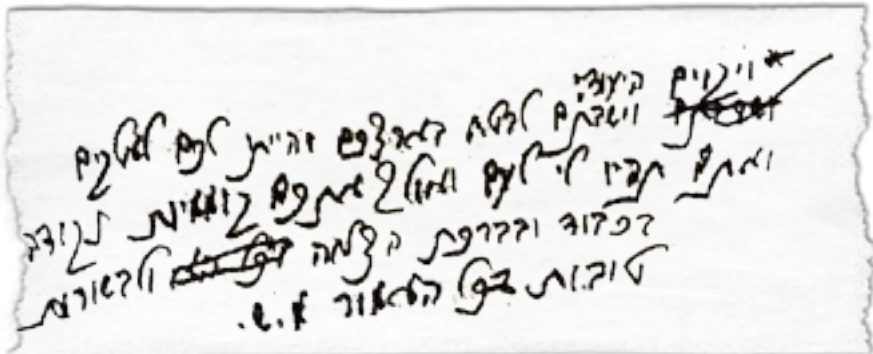 * ויקוים היעוד
וישבתם לבטח בארצכם והייתי לכם לאלקים
ואתם תהיו לי לעם ואולך אתכם קוממיות
בכבוד ובברכת הצלחה ולבשורות
טובות בכל האמור מ.ש.